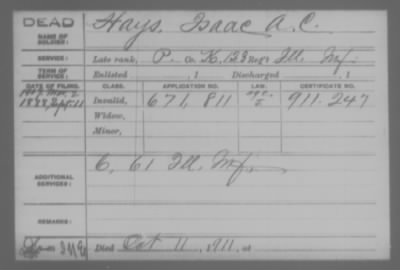 DEAD
NAME OF SOLDIER: Hays, Isaac A. C.
SERVICE: Late rank, P. Co. K, 123 Regt Ill. Inf.
TERM OF SERVICE: Enlisted , 1 Discharged , 1
DATE OF FILING. CLASS. APPLICATION NO. LAW. CERTIFICATE NO.
1888, Sept. 11 Invalid, 671,811 911.247
Widow,
Minor,
ADDITIONAL SERVICES: C, 61 Ill. Inf.
REMARKS:
Died Oct 11, 1911, at